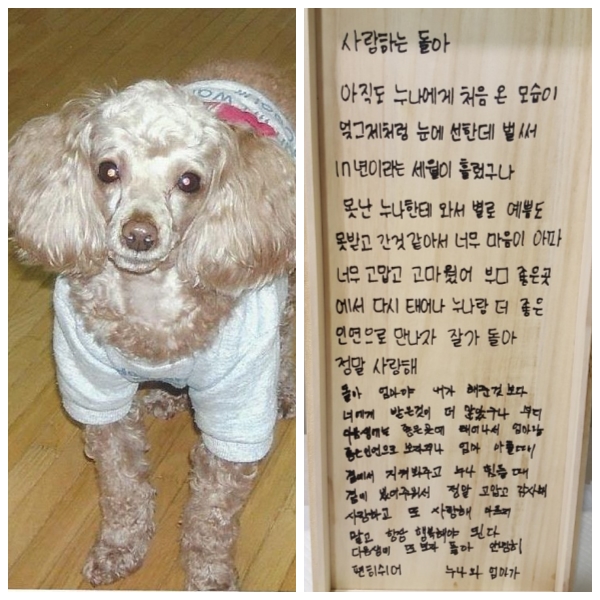 사랑하는 돌아
아직도 누나에게 처음 온 모습이
엊그제처럼 눈에 선한데 벌써
17년이라는 세월이 흘렀구나
못난 누나한테 와서 별로 예쁨도
못받고 간것같아서 너무 마음이 아파
너무 고맙고 고마웠어 부디 좋은곳
에서 다시 태어나 누나랑 더 좋은
인연으로 만나자 잘가 돌아
정말 사랑해
돌아 엄마야 내가 해준것 보다
너에게 받은것이 더 많았구나 부디
다음생에는 좋은곳에 태어나서 엄마랑
좋은인연으로 보자꾸나 엄마 아플때
곁에서 지켜봐주고 누나 힘들때
같이 있어주어서 정말 고맙고 감사해
사랑하고 또 사랑해 아프지
말고 항상 행복해야 된다
다음생에 또 보자 돌아 편히
쉬어 누나와 엄마가